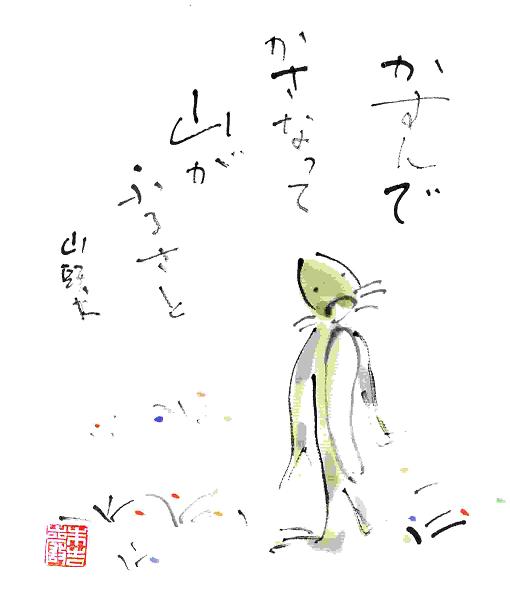 かすんで
かさなって
山が
ふるさと
山頭火